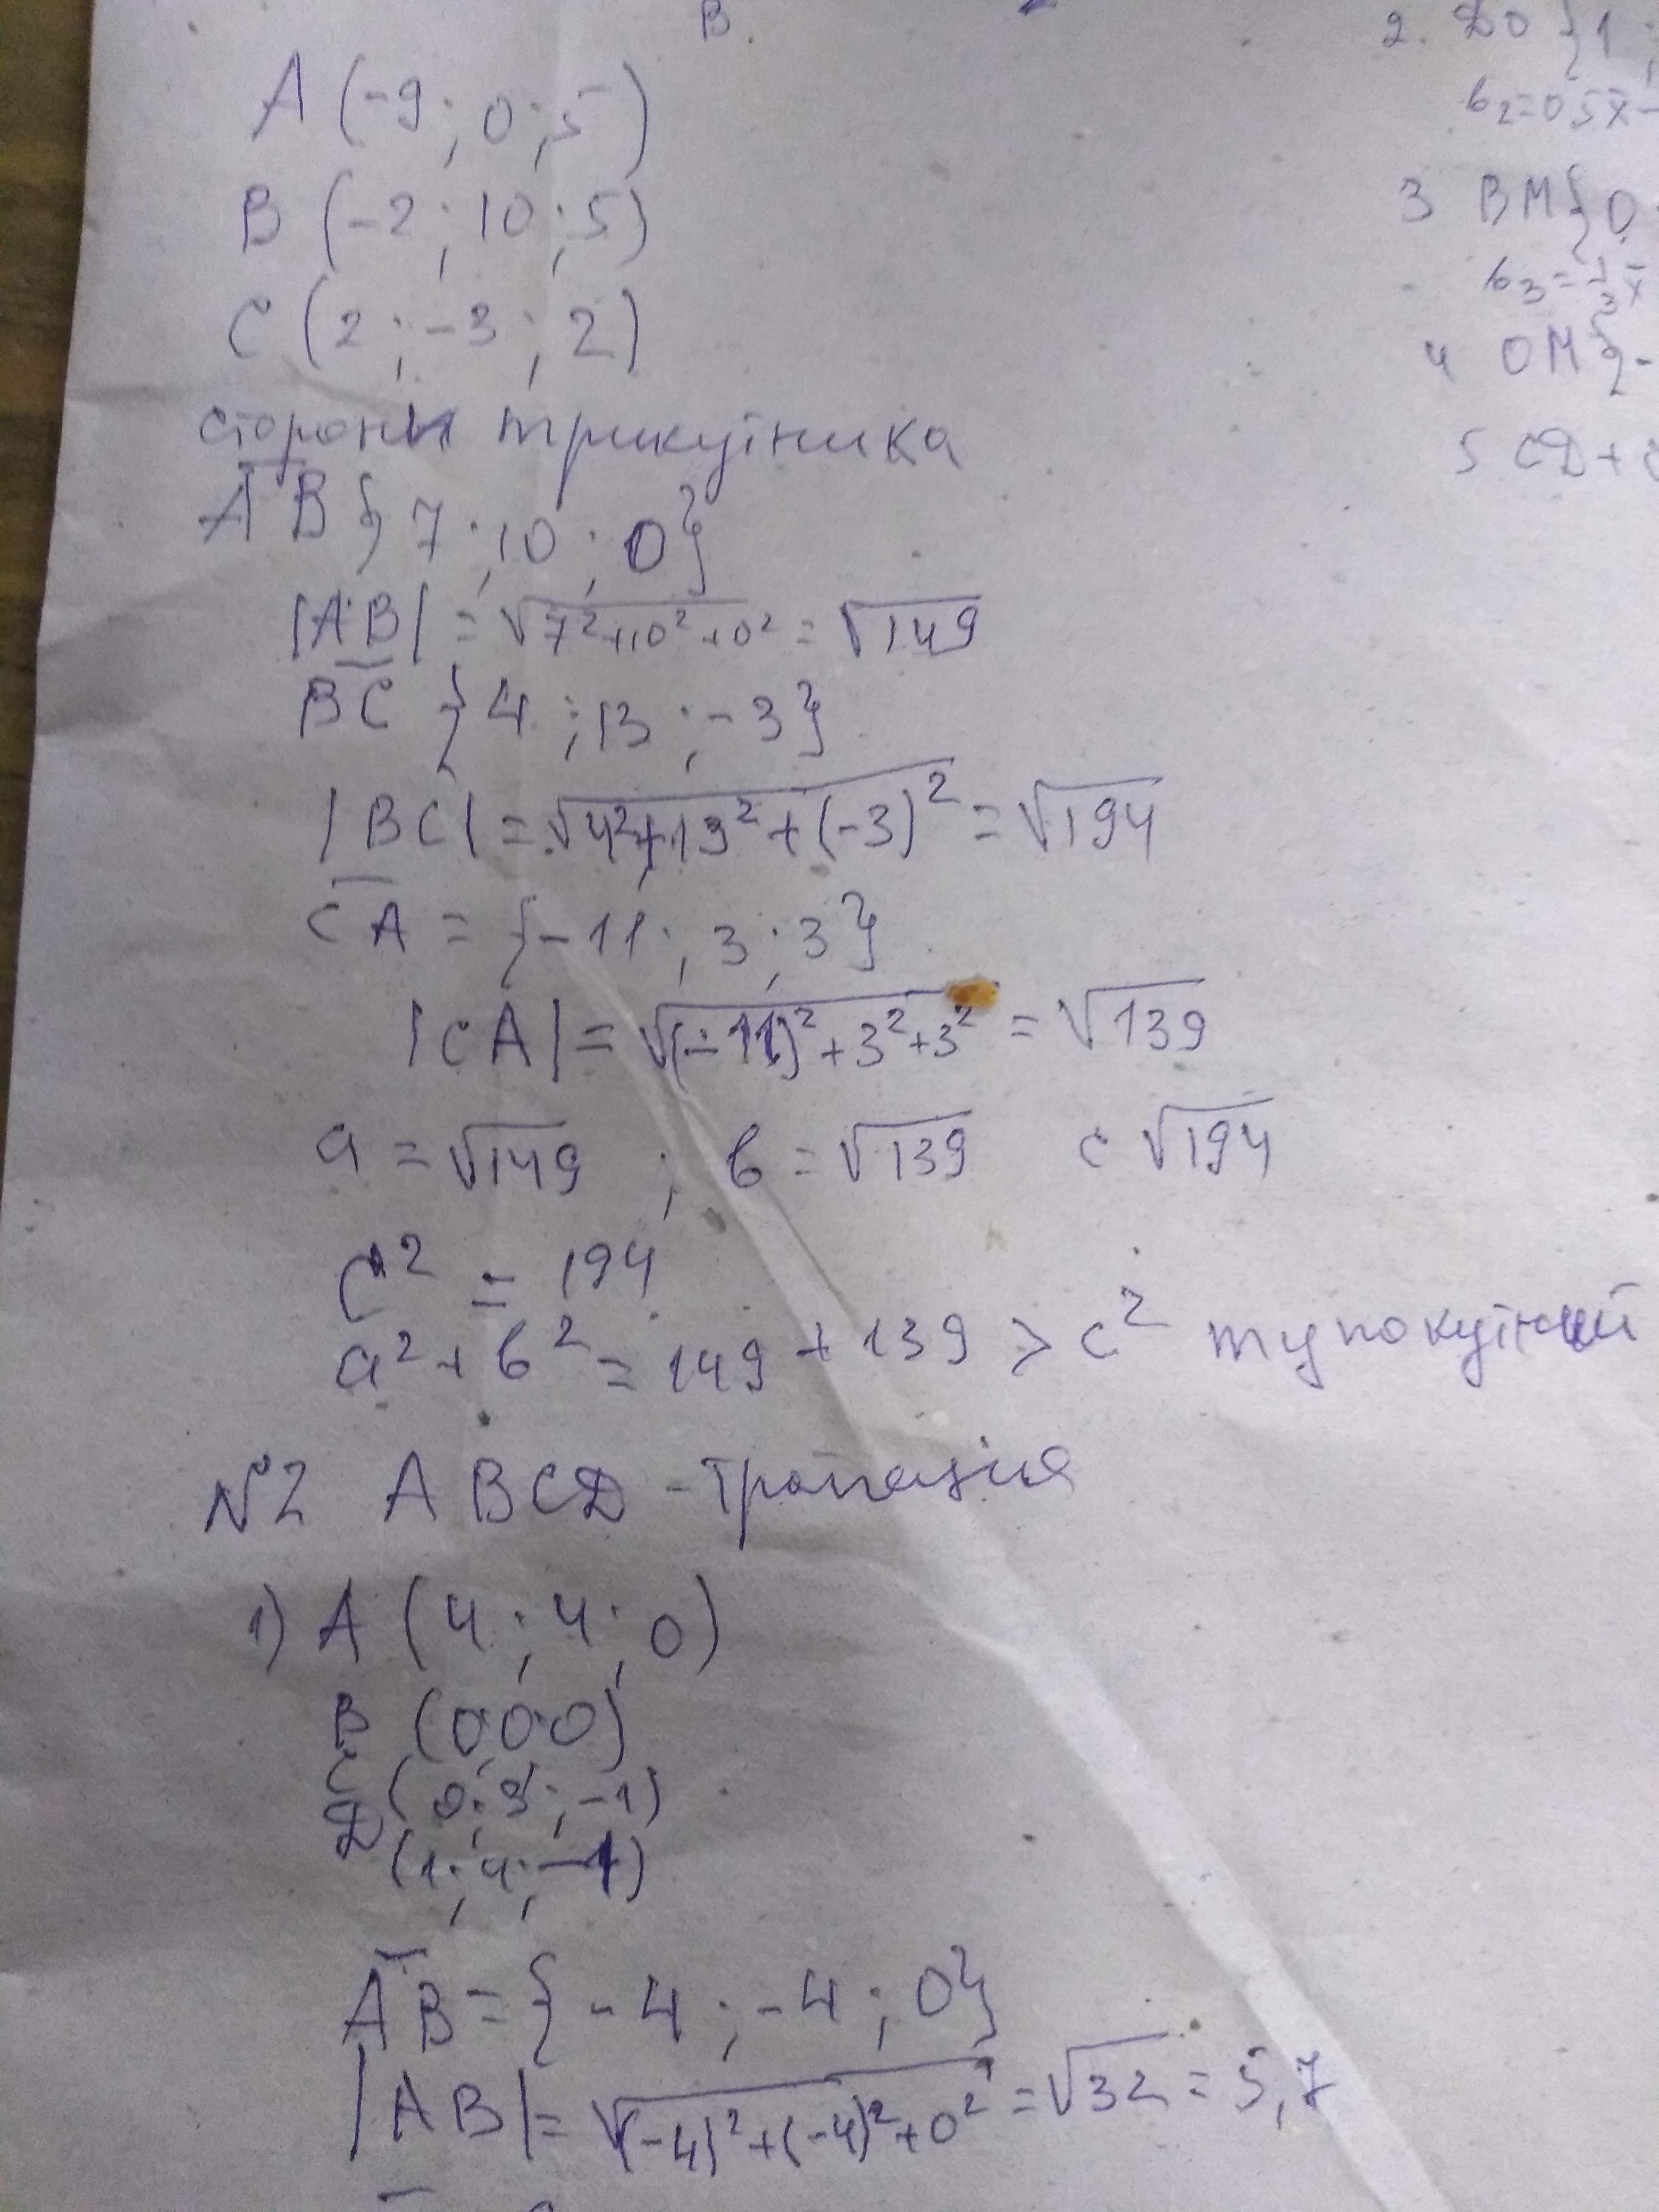 В.
A (-9; 0; 5)
B (-2; 10; 5)
C (2; -3; 2)
сторони трикутника
AB {7; 10; 0}
|AB| = √7²+10²+0² = √149
BC {4; 13; -3}
|BC| = √4²+13²+(-3)² = √194
CA = {-11; 3; 3}
|CA| = √(-11)²+3²+3² = √139
a = √149 ; b = √139 c √194
c² = 194
a² + b² = 149 + 139 > c² тупокутний
№2 ABCD - трапеція
1) A (4; 4; 0)
B (0;0;0)
C (0; 3; -1)
D (1; 4; -1)
AB = {-4; -4; 0}
|AB| = √(-4)²+(-4)²+0² = √32 = 5,7
2. DO {1;
b2=0,5x-
3 BM{0
b3=-1/3x
4 OM{-
5 CD+